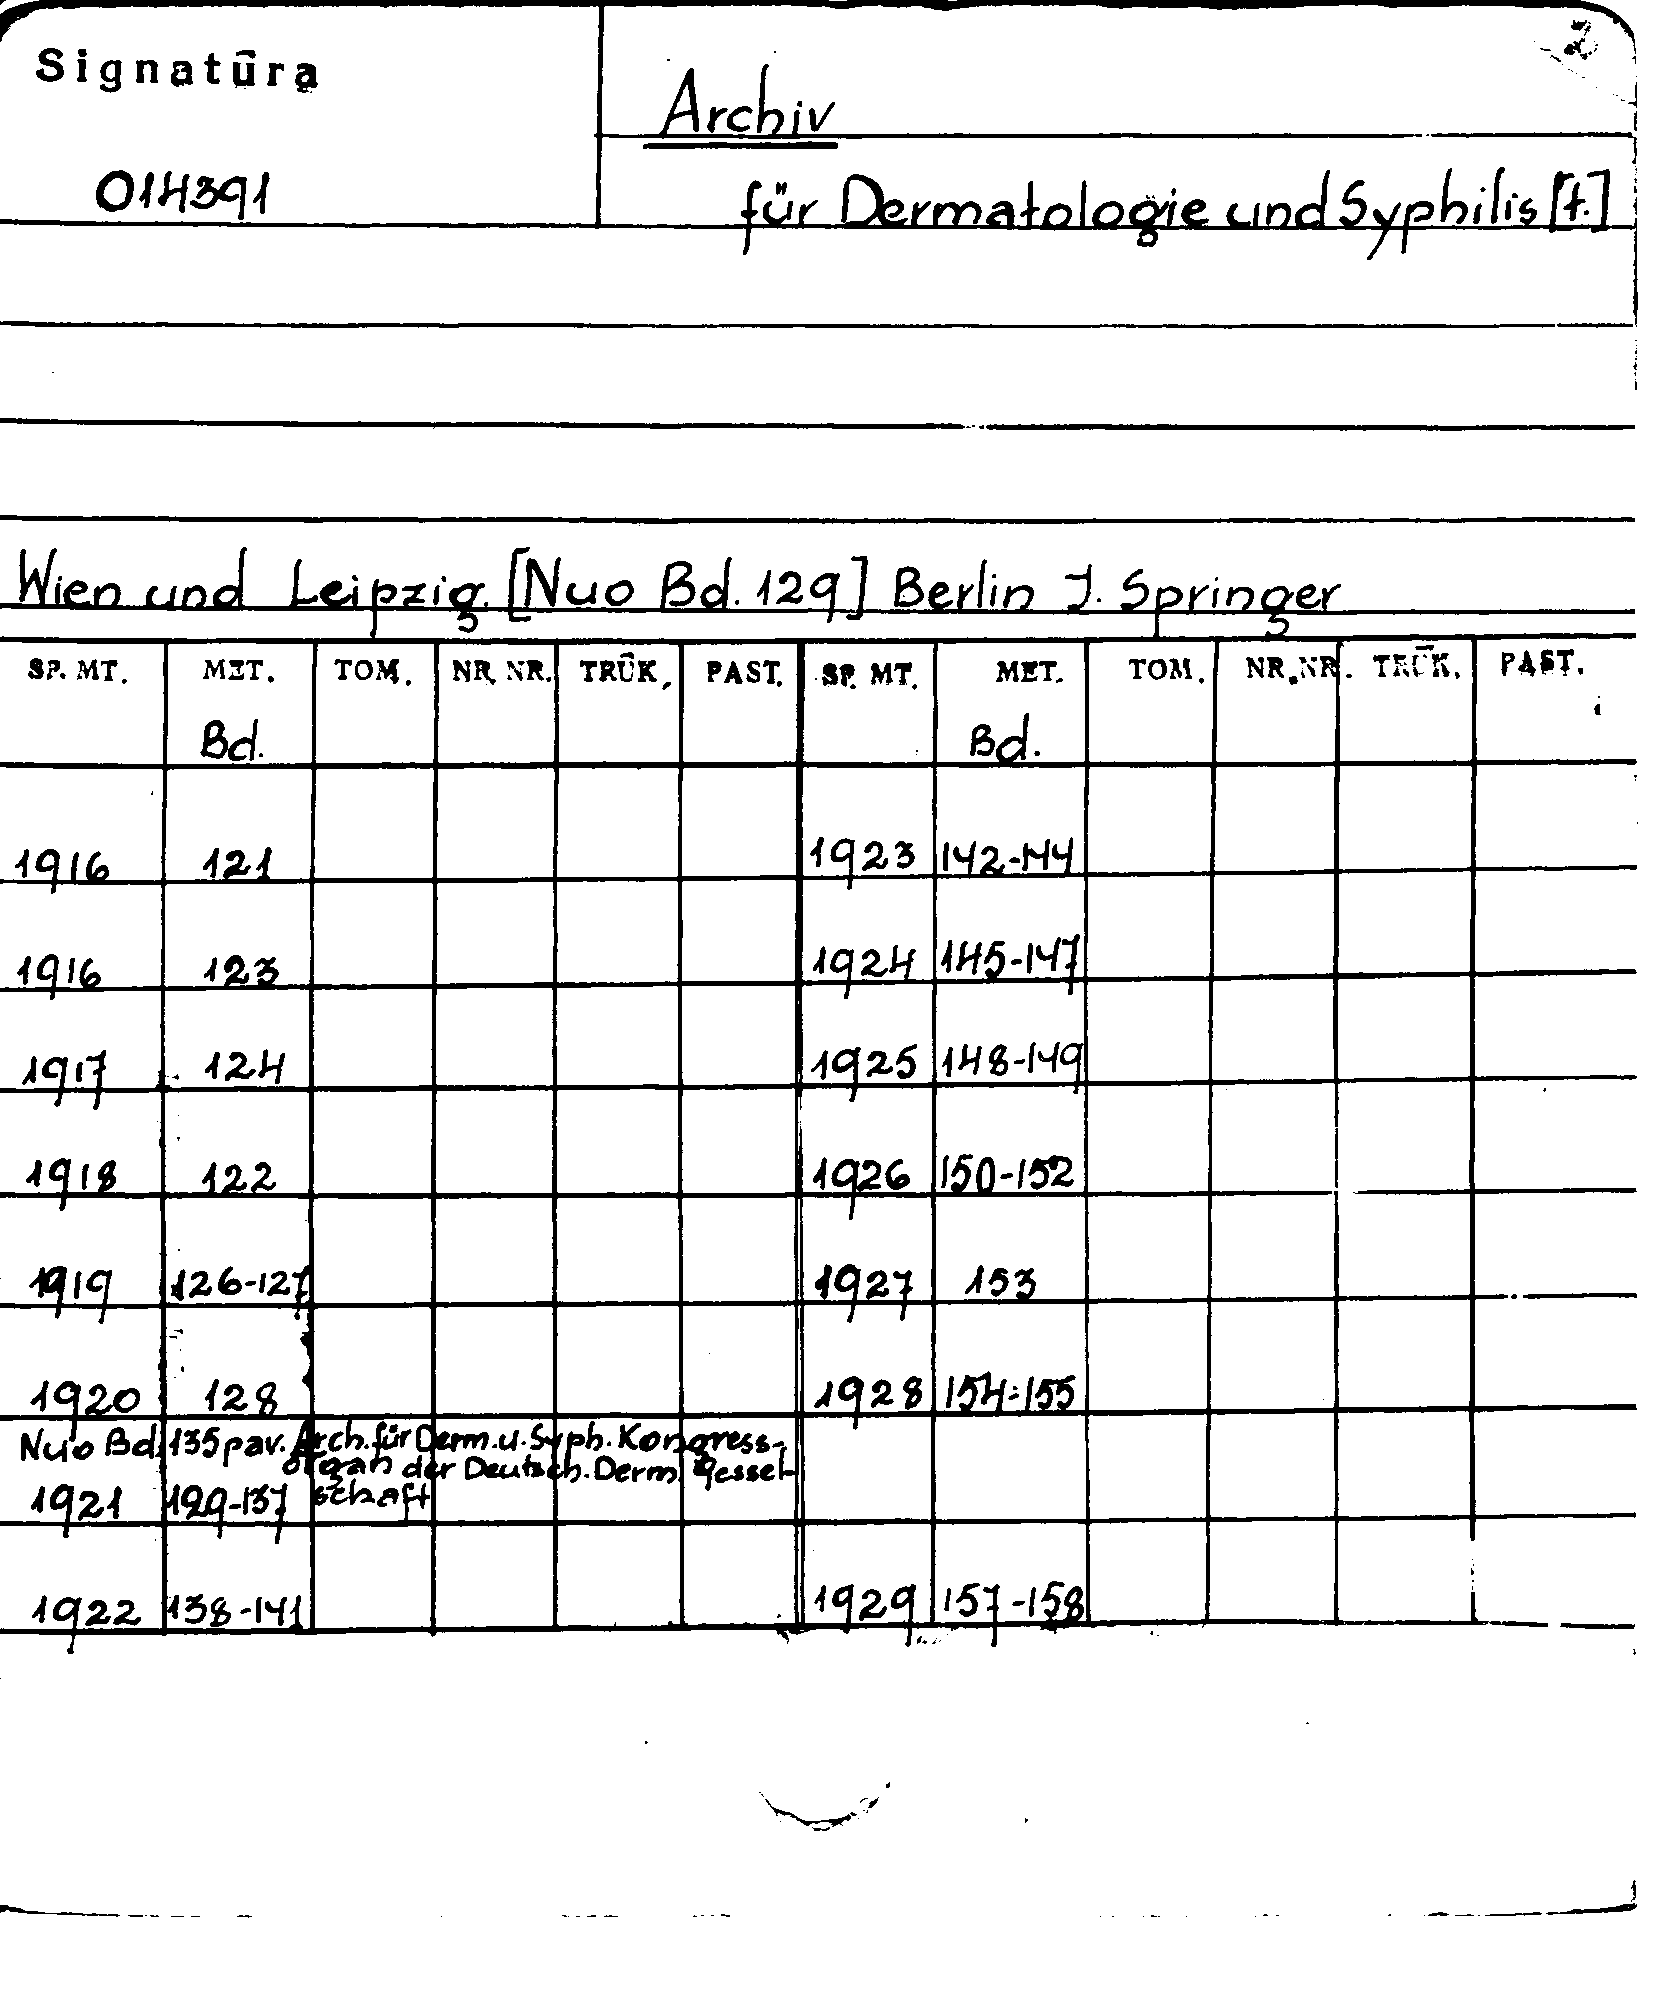 Signatūra
Archiv
014391
für Dermatologie und Syphilis [t.]
Wien und Leipzig. [Nuo Bd. 129] Berlin J. Springer
SP. MT. MET. TOM. NR. NR. TRŪK. PAST. SP. MT. MET. TOM. NR. NR. TRŪK. PAST.
Bd. Bd.
1916 121 1923 142-144
1916 123 1924 145-147
1917 124 1925 148-149
1918 122 1926 150-152
1919 126-127 1927 153
1920 128 1928 154-155
Nuo Bd. 135 pav. Arch. für Derm. u. Syph. Kongress-
organ der Deutsch. Derm. Gessel-
schaft
1921 129-137
1922 138-141 1929 157-158